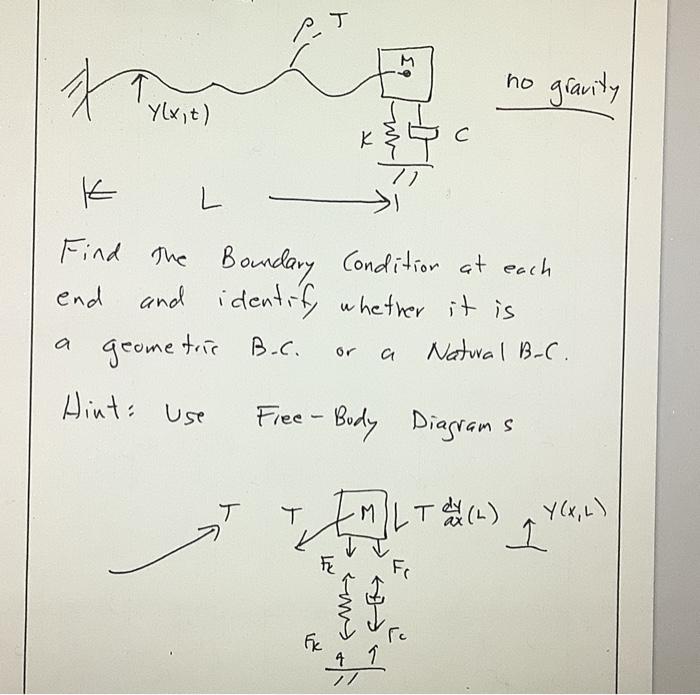 ρ, T
M
no gravity
Y(x,t)
K
C
L
Find the Boundary Condition at each
end and identify whether it is
a geometric B.C. or a Natural B-C.
Hint: Use Free-Body Diagrams
T
T
M
T dy/dx (L)
Y(x,L)
Fk
Fc
Fk
Fc